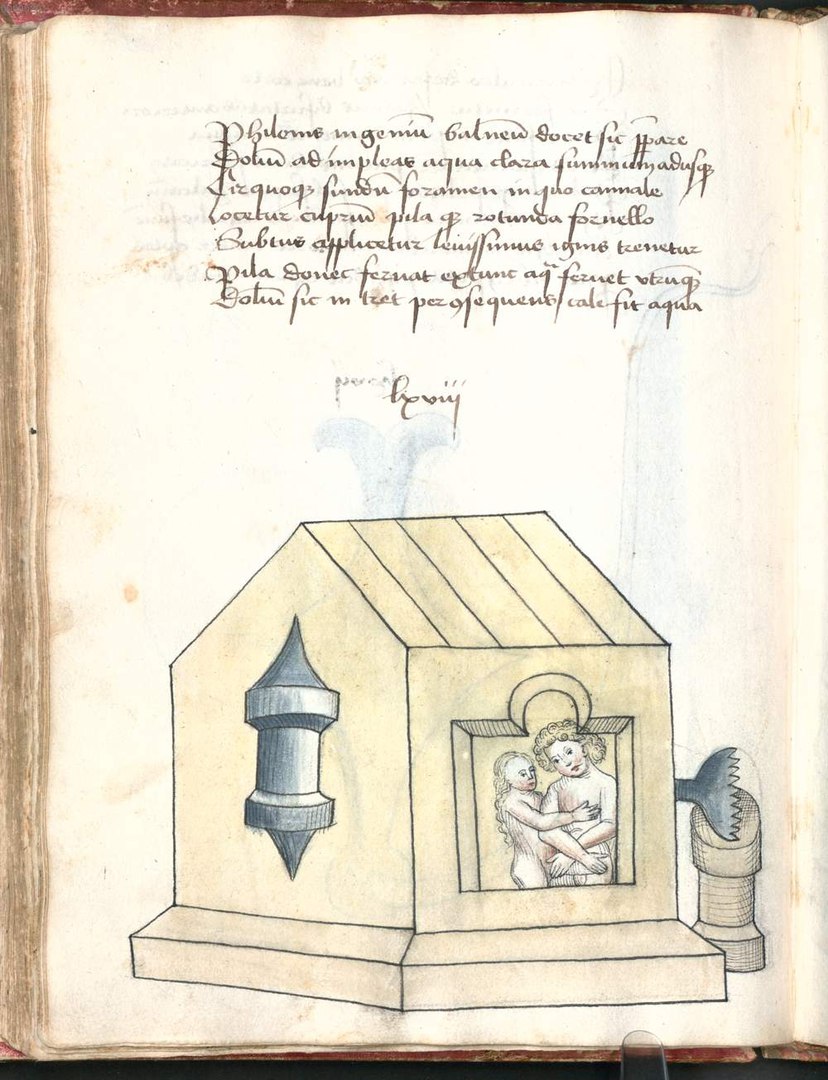 Philonis ingeniū balneū docet sic ꝑpare
Doliū ad impleas aqua clara summum adusqꝫ
Cirquoqꝫ fundū foramen in quo cannale
Locetur cupriū pila qꝫ rotunda fornello
Subtus applicetur leuissimus ignis trenetur
Pila donec feruat extunc aqᵃ feruet vtrūqꝫ
Doliū sic in tret per ꝯsequens cale fit aqua
lxviii